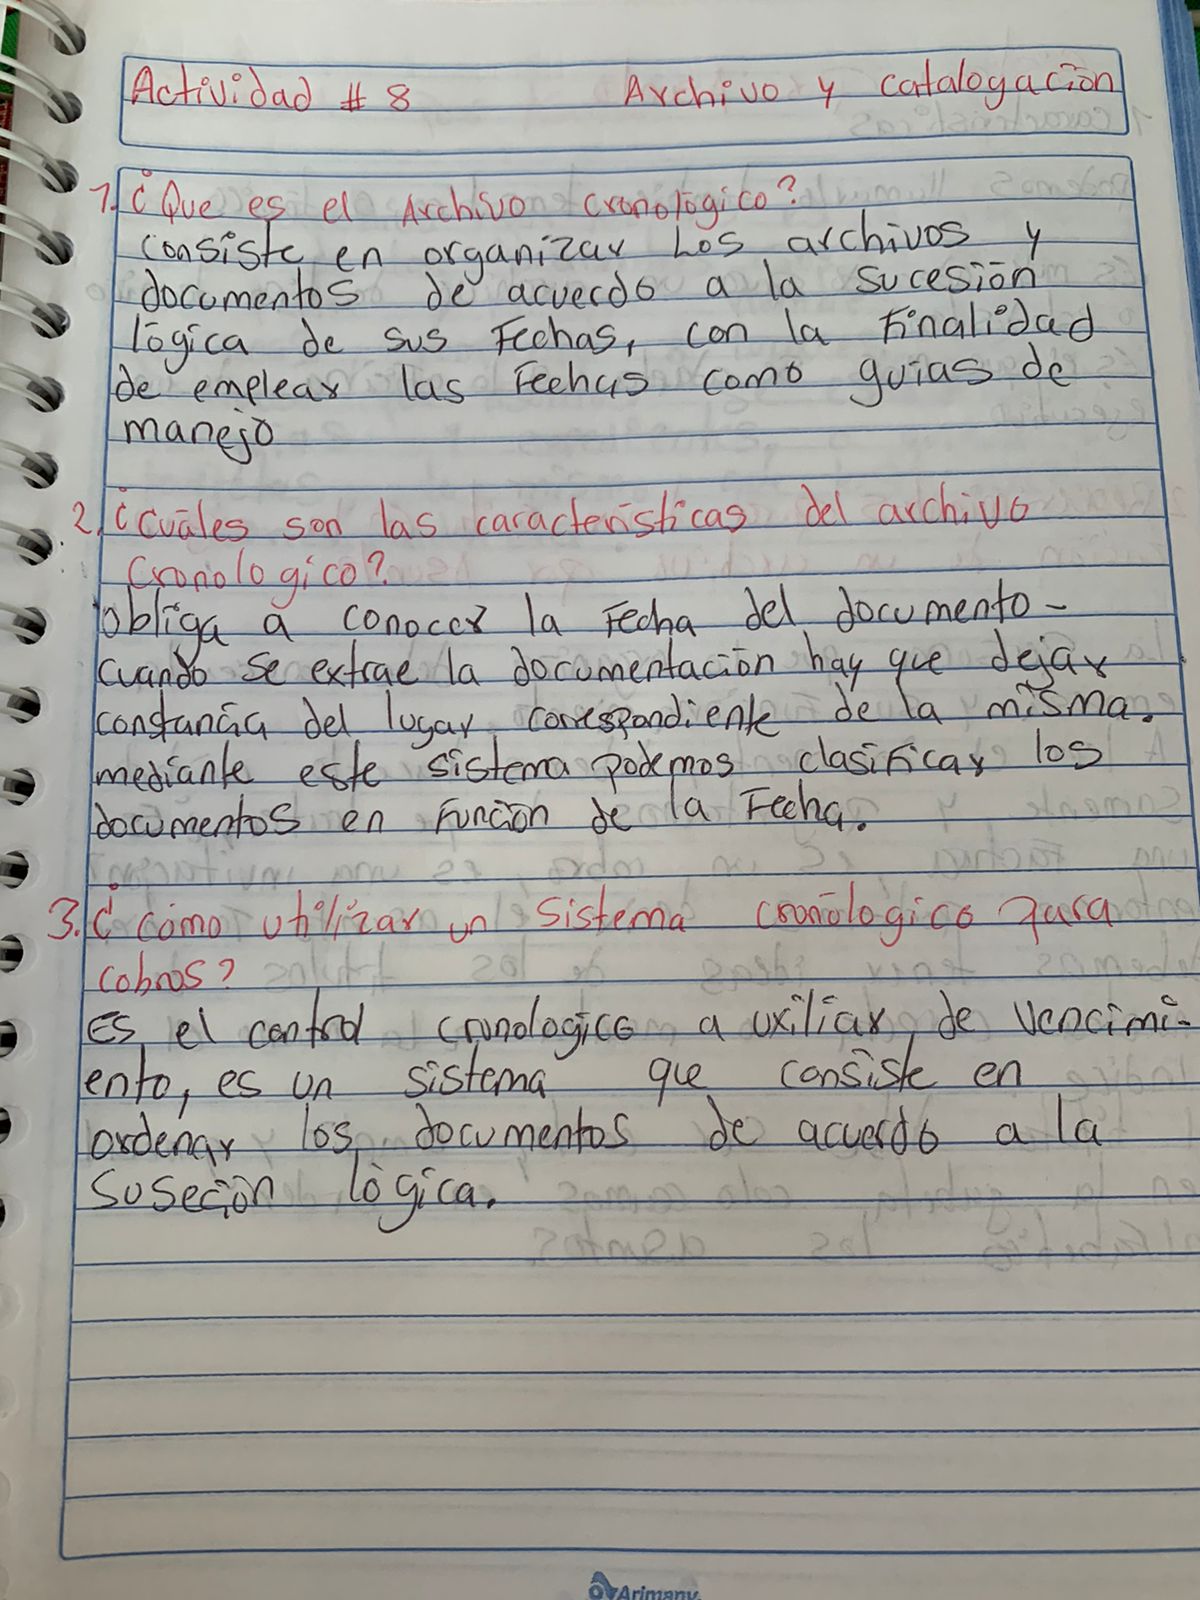 Actividad # 8 Archivo y catalogación
1. ¿Que es el Archivo cronológico?
consiste en organizar Los archivos y
documentos de acuerdo a la sucesión
lógica de sus Fechas, con la Finalidad
de emplear las Fechas como guias de
manejo
2. ¿cuáles son las características del archivo
cronologico?
obliga a conocer la Fecha del documento-
cuando se extrae la documentación hay que dejar
constancia del lugar correspondiente de la misma.
mediante este sistema podemos clasificar los
documentos en Función de la Fecha.
3. ¿como utilizar un sistema cronológico para
cobros?
Es el control cronologico auxiliar de vencimi-
ento, es un sistema que consiste en
ordenar los documentos de acuerdo a la
suseción lógica.
Arimany